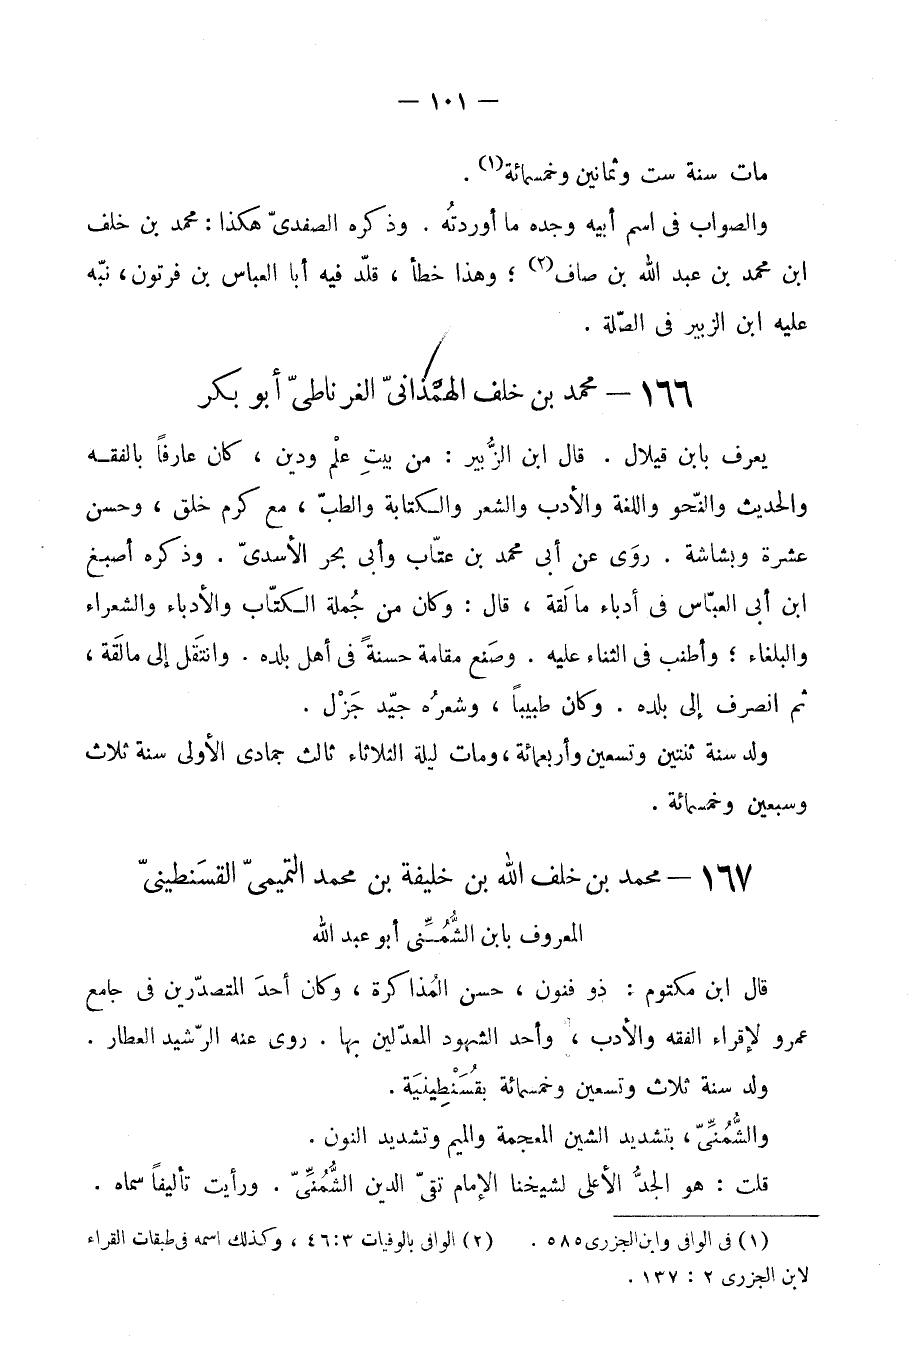 — ١٠١ —
مات سنة ست وثمانين وخمسمائة(١) .
والصواب فى اسم أبيه وجده ما أوردتُه . وذكره الصفدىّ هكذا : محمد بن خلف
ابن محمد بن عبد الله بن صاف(٢) ؛ وهذا خطأ ، قلّد فيه أبا العباس بن فرتون، نبّه
عليه ابن الزبير فى الصّلة .
١٦٦ — محمد بن خلف الهمْذانىّ الغرناطىّ أبو بكر
يعرف بابن قيلال . قال ابن الزُّبير : من بيتِ علْم ودين ، كان عارفاً بالفقه
والحديث والنّحو واللغة والأدب والشعر والكتابة والطبّ ، مع كرم خلق ، وحسن
عشرة وبشاشة . روَى عن أبى محمد بن عتّاب وأبى بحر الأسدىّ . وذكره أصبغ
ابن أبى العبّاس فى أدباء مالَقة ، قال : وكان من جُملة الكتّاب والأدباء والشعراء
والبلغاء ؛ وأطنب فى الثناء عليه . وصَنع مقامة حسنةً فى أهل بلده . وانتقَل إلى مالَقة ،
ثم انصرف إلى بلده . وكان طبيباً ، وشعرُه جيّد جَزْل .
ولد سنة ثنتين وتسعين وأربعمائة ، ومات ليلة الثلاثاء ثالث جمادى الأولى سنة ثلاث
وسبعين وخمسمائة .
١٦٧ — محمد بن خلف الله بن خليفة بن محمد التميمىّ القسَنطينىّ
المعروف بابن الشُّمُنِّى أبو عبد الله
قال ابن مكتوم : ذو فنون ، حسن المُذاكرة ، وكان أحدَ المتصدّرين فى جامع
عمرو لإقراء الفقه والأدب ، وأحد الشهود المعدّلين بها . روى عنه الرّشيد العطار .
ولد سنة ثلاث وتسعين وخمسمائة بقُسَنْطِينيَة .
والشُّمُنِّىّ، بتشديد الشين المعجمة والميم وتشديد النون .
قلت : هو الجدُّ الأعلى لشيخنا الإمام تقىّ الدين الشُّمُنِّىّ . ورأيت تأليفاً سماه .
(١) فى الوافى وابن الجزرى ٥٨٥ . (٢) الوافى بالوفيات ٣ : ٤٦ ، وكذلك اسمه فى طبقات القراء
لابن الجزرى ٢ : ١٣٧ .